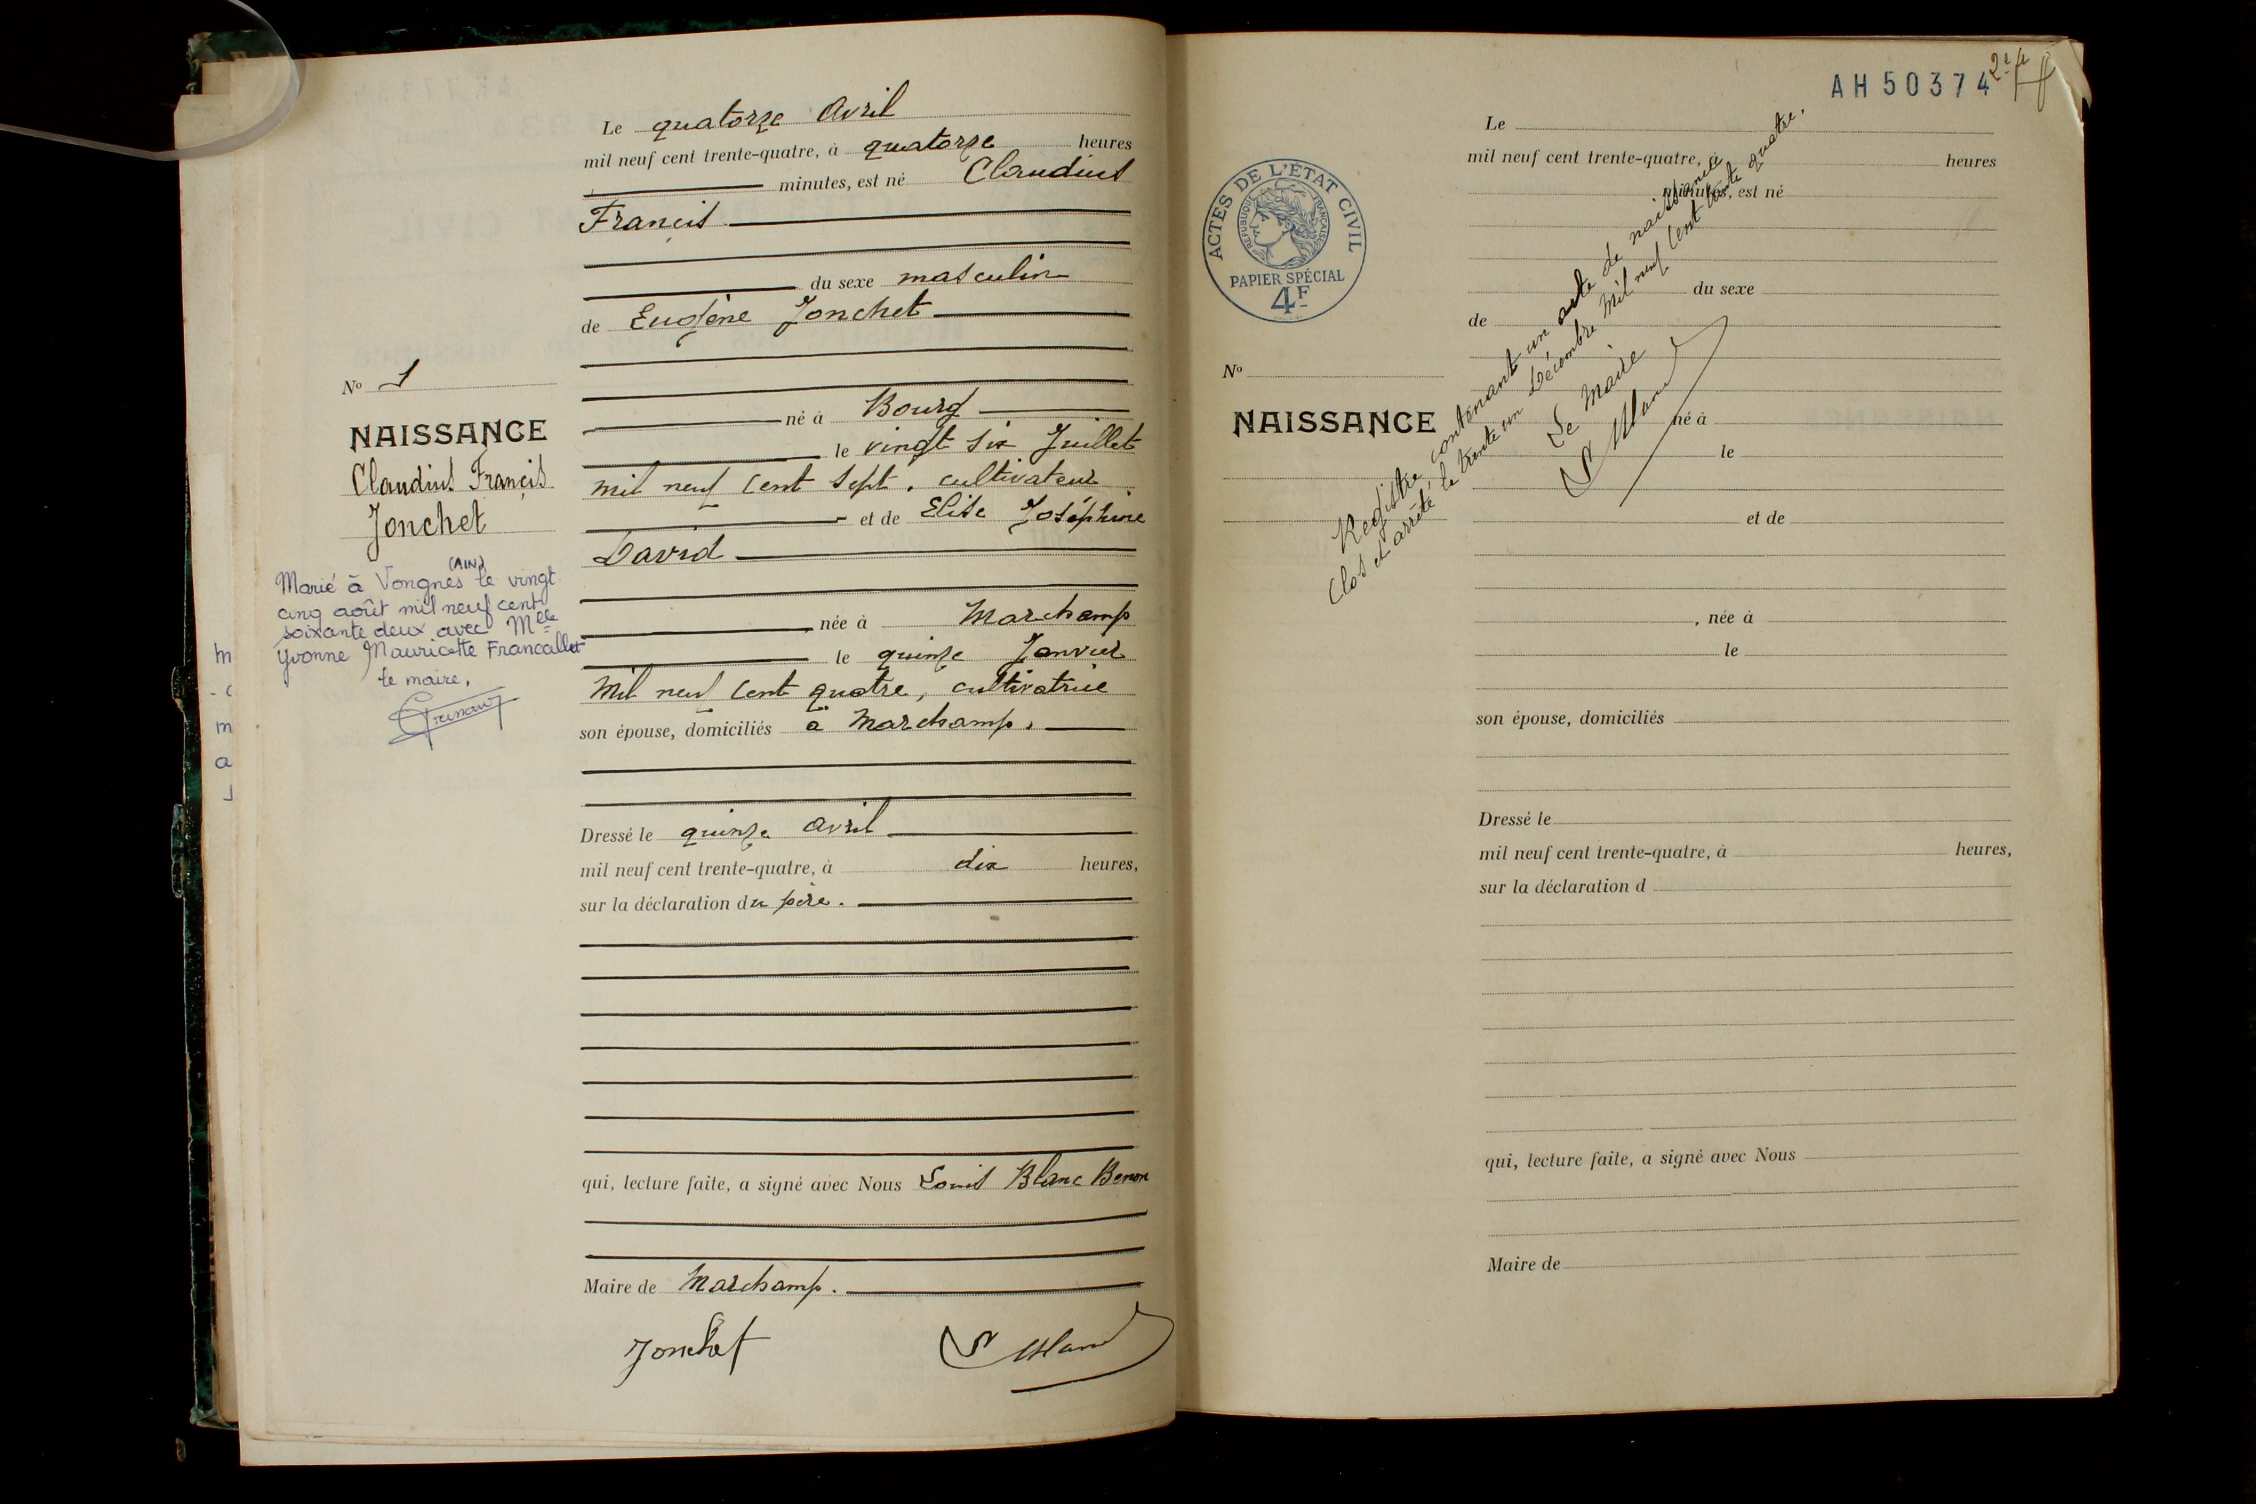 Le quatorze Avril
mil neuf cent trente-quatre, à quatorze heures
minutes, est né Claudius
Francis
du sexe masculin
de Eugène Jonchet
né à Bourg
le vingt six Juillet
mil neuf cent sept, cultivateur
et de Elise Joséphine
David
née à Marchamp
le quinze Janvier
mil neuf cent quatre, cultivatrice
son épouse, domiciliés à Marchamp.
Dressé le quinze avril
mil neuf cent trente-quatre, à dix heures,
sur la déclaration du père.
qui, lecture faite, a signé avec Nous Louis Blanc Benon
Maire de Marchamp.
Jonchet
No 1
NAISSANCE
Claudius Francis
Jonchet
Marié à Vongnes (AIN) le vingt
cinq août mil neuf cent
soixante deux avec Mlle
Yvonne Mauricette Francallet
le maire,
AH 50374
ACTES DE L'ÉTAT CIVIL
RÉPUBLIQUE FRANÇAISE
PAPIER SPÉCIAL
4F
No
NAISSANCE
Le
mil neuf cent trente-quatre, à heures
minutes, est né
du sexe
de
né à
le
et de
, née à
le
son épouse, domiciliés
Dressé le
mil neuf cent trente-quatre, à heures,
sur la déclaration d
qui, lecture faite, a signé avec Nous
Maire de
Registre contenant un acte de naissance
Clos et arrêté le trente un Décembre mil neuf cent trente quatre.
Le Maire